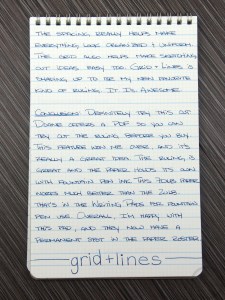 THE SPACING REALLY HELPS MAKE
EVERYTHING LOOK ORGANIZED & UNIFORM.
THE GRID ALSO HELPS MAKE SKETCHING
OUT IDEAS EASY TOO. GRID + LINES IS
SHAPING UP TO BE MY NEW FAVORITE
KIND OF RULING. IT IS AWESOME.
CONCLUSION: DEFINITELY TRY THIS OUT.
DOANE OFFERS A PDF SO YOU CAN
TRY OUT THE RULING BEFORE YOU BUY.
THIS FEATURE WON ME OVER, AND IT'S
REALLY A GREAT IDEA. THE RULING IS
GREAT AND THE PAPER HOLDS ITS OWN
WITH FOUNTAIN PEN INK. THIS PAPER
WORKS MUCH BETTER THAN THE
THAT'S IN THE WRITING PADS FOR FOUNTAIN
PEN USE. OVERALL, I'M HAPPY WITH
THIS PAD, AND THEY NOW HAVE A
PERMANENT SPOT IN THE PAPER ROSTER.
grid+lines